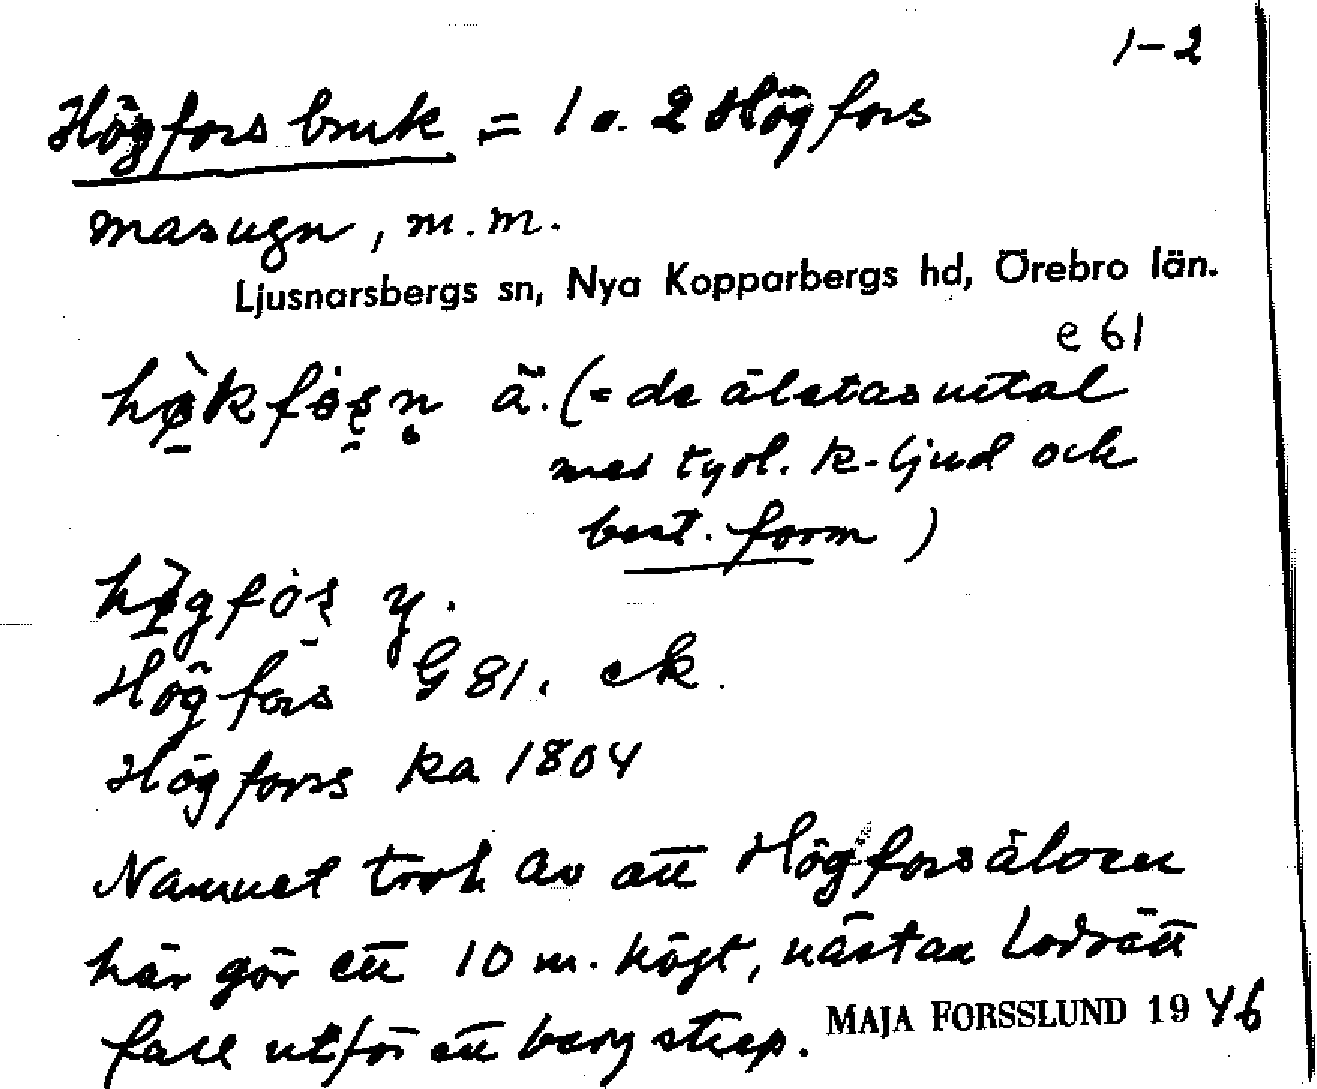 1-2
Högfors bruk = 1 o. 2 Högfors
masugn, m.m.
Ljusnarsbergs sn, Nya Kopparbergs hd, Örebro län.
e 61
ä. (= de älstas uttal
med tydl. k-ljud och
best. form)
y.
Högfors G 81. ek.
Högforss ka 1804
Namnet trol. av att Högforsälven
här gör ett 10 m. högt, nästan lodrätt
fall utför ett bergstup.
MAJA FORSSLUND 1946